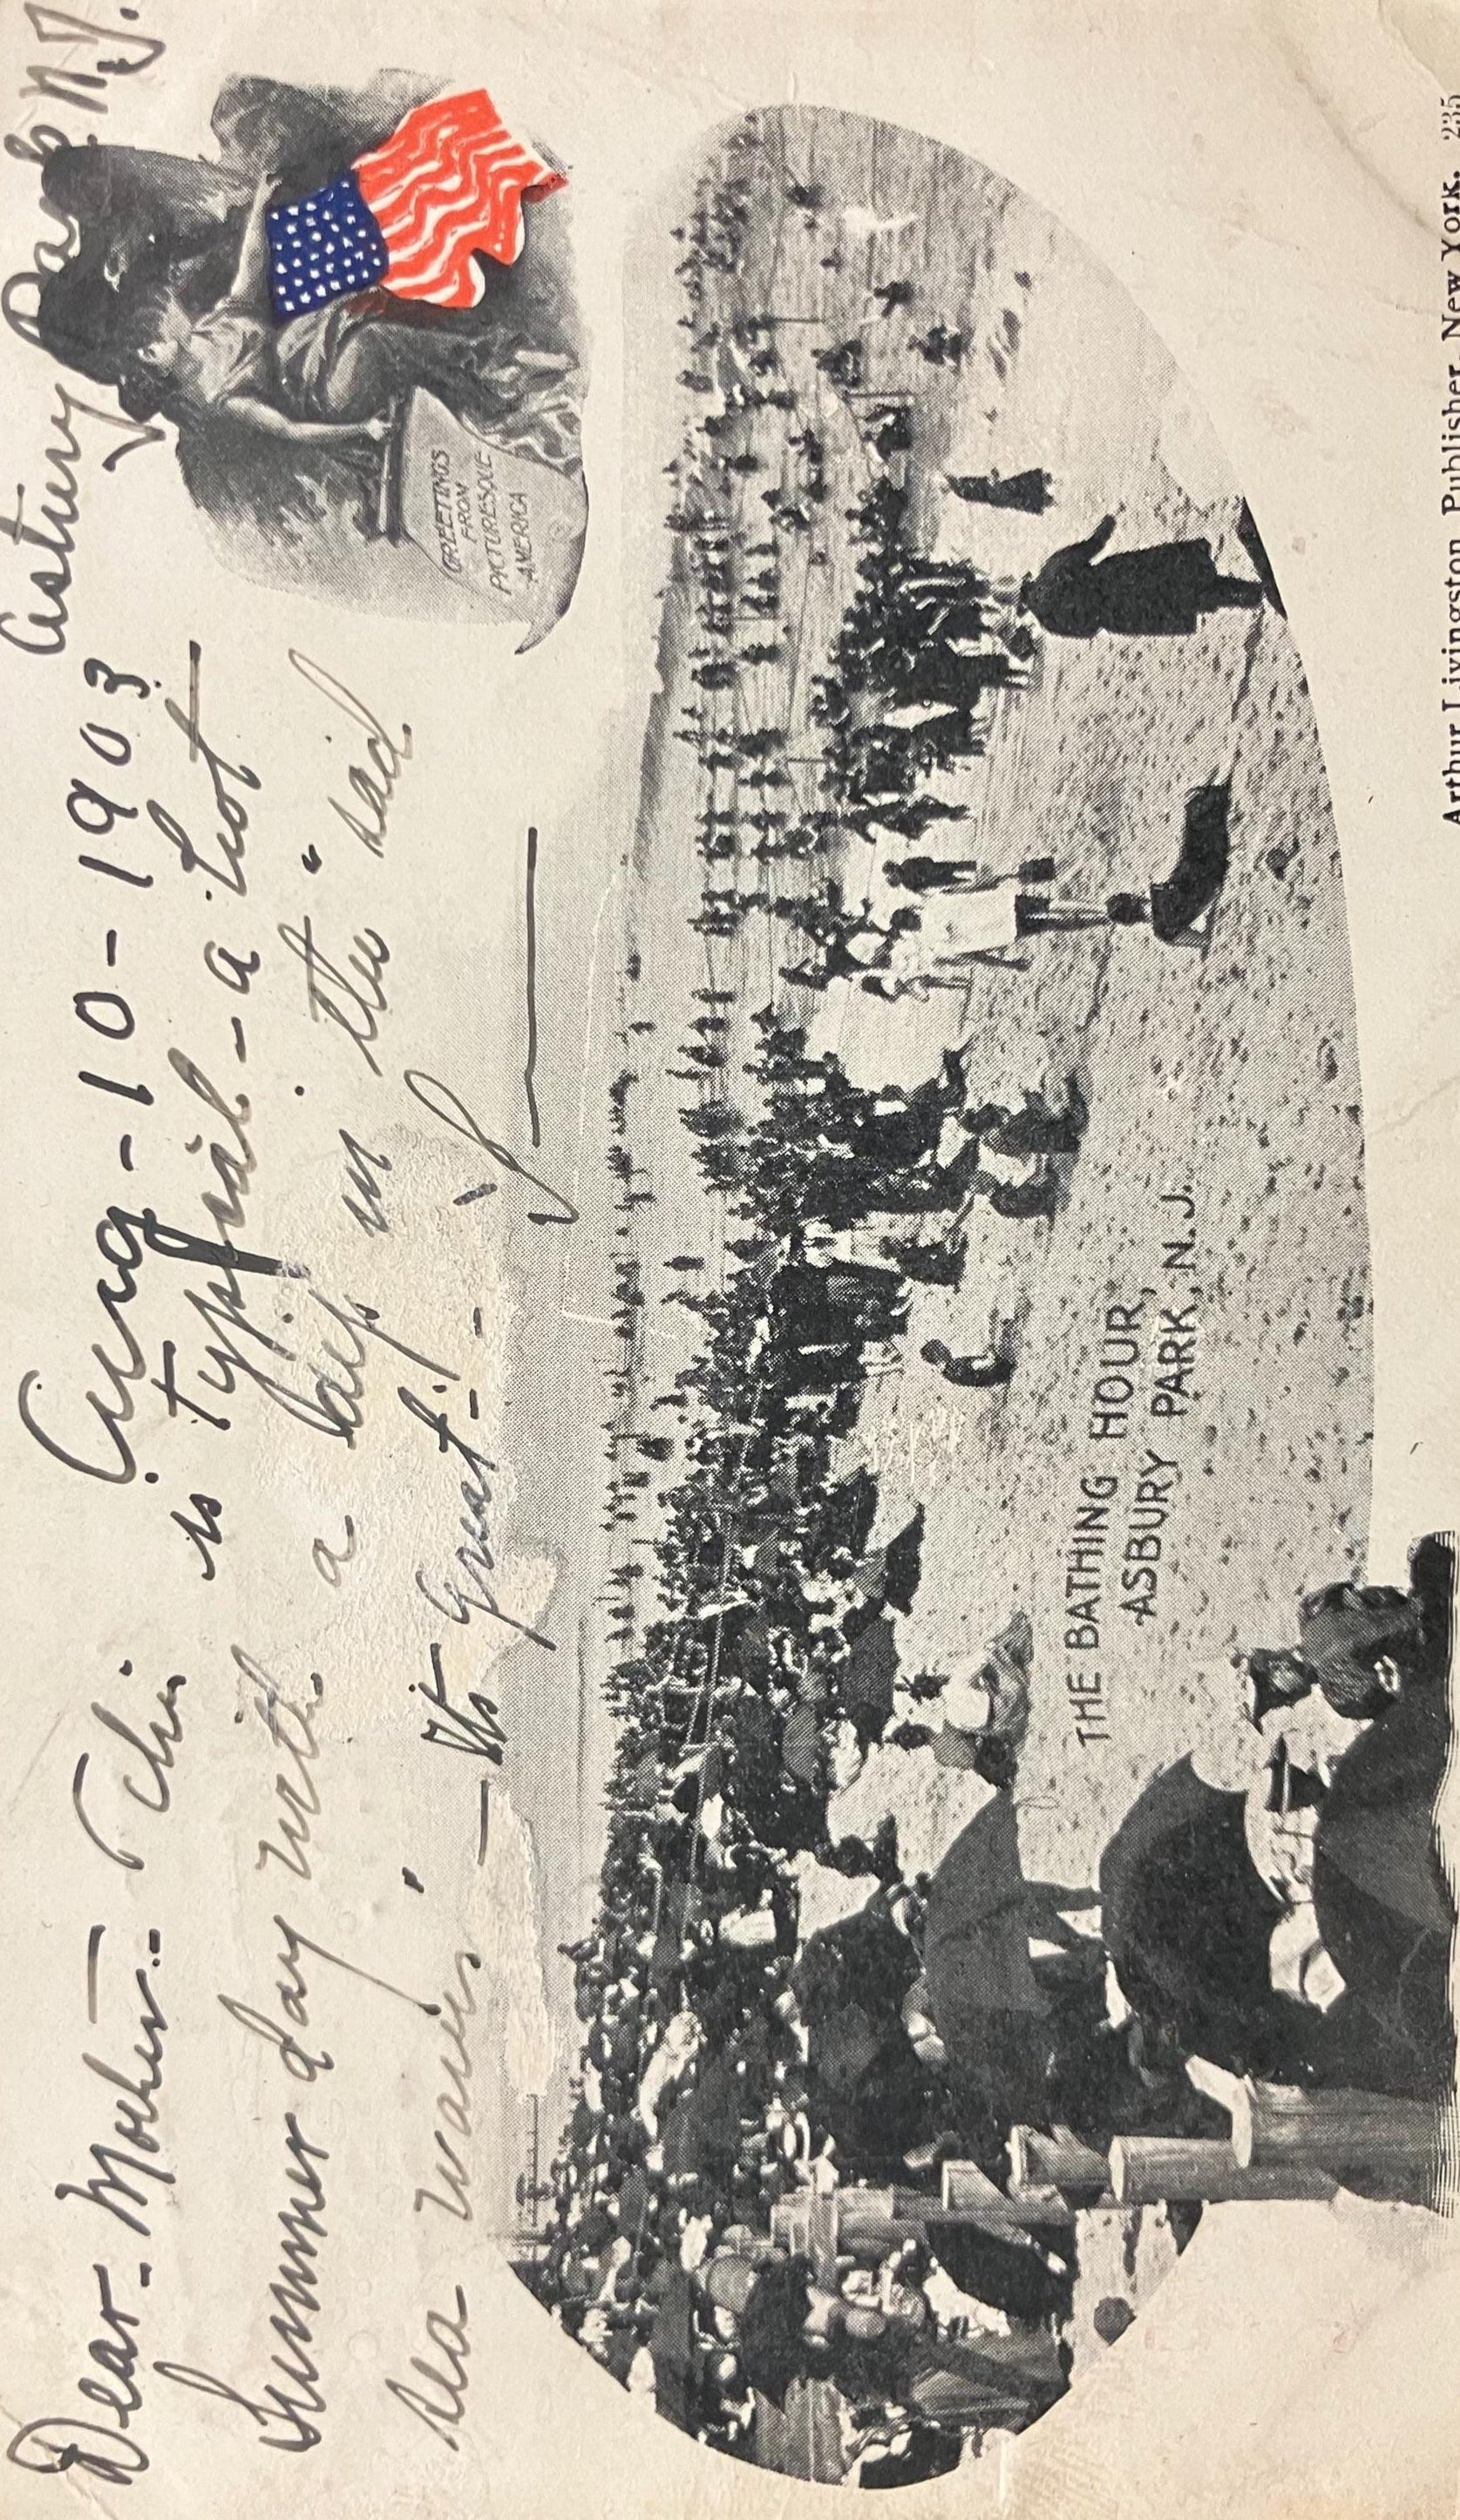 Aug-10-1903 Asbury Park N.J.
Dear Mother:- This is typical - a hot
summer day with a dip in the "sad
sea waves". - Its Great!! -
GREETINGS
FROM
PICTURESQUE
AMERICA
THE BATHING HOUR,
ASBURY PARK, N.J.
Arthur Livingston Publisher, New York. 235